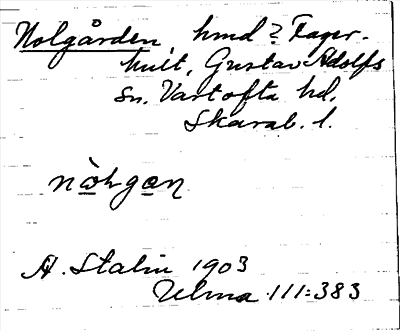 Nolgården hmd? Fager-
hult, Gustav Adolfs
sn. Vartofta hd,
Skarab. l.
A. Stalin 1903
Ulma 111:383